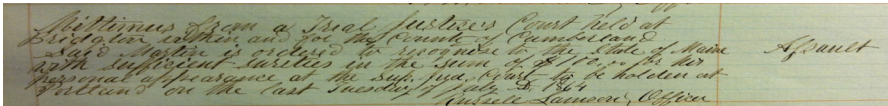 Mittimus from a Trial Justices Court held at
Bridgton within and for the County of Cumberland
Said Martin is ordered to recognize to the State of Maine
with sufficient sureties in the sum of $100,00 for his
personal appearance at the Sup. Jud. Court to be holden at
Portland on the last Tuesday of July 1864
Assault
Russell Lamson, Officer